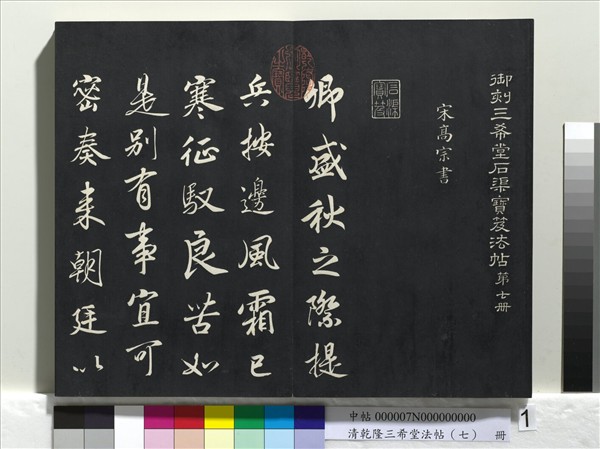 御刻三希堂石渠寶笈法帖第七册
宋高宗書
石渠寶笈
卿盛秋之際提
兵按邊風霜已
寒征馭良苦如
是别有事宜可
密奏来朝廷以
中帖 000007N000000000
清乾隆三希堂法帖（七） 冊
1